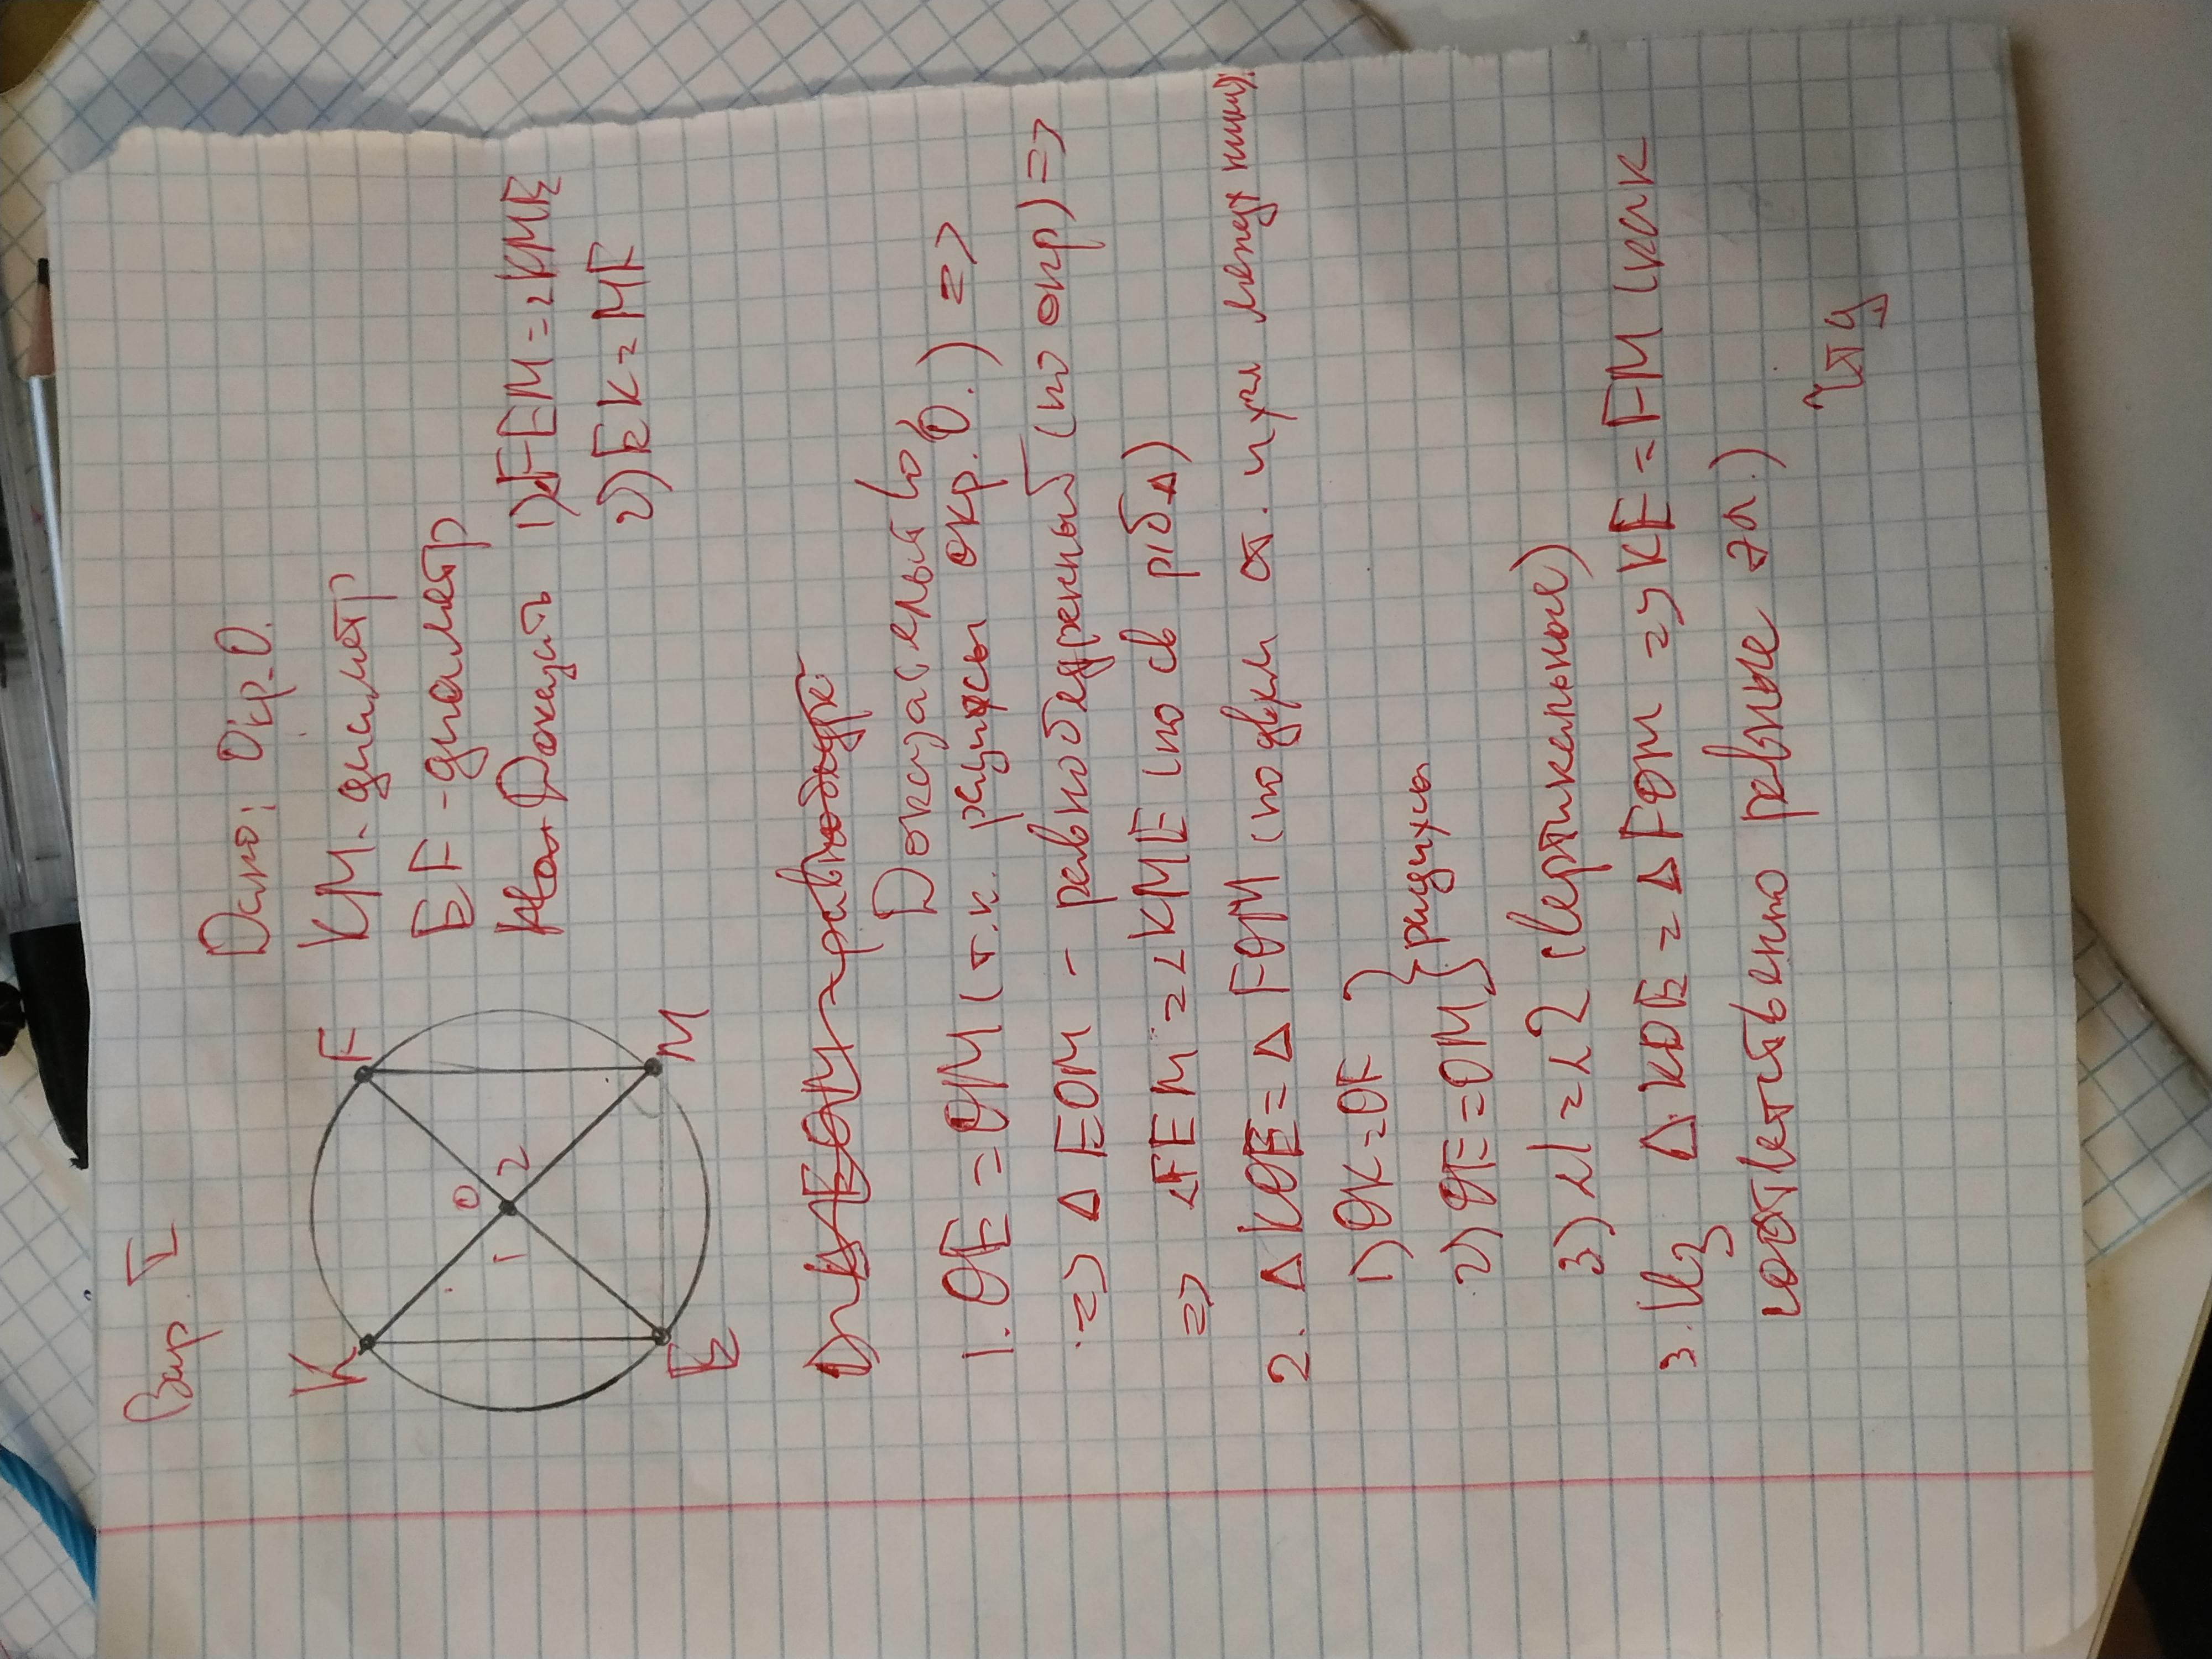 Вар I
K
F
O
1
2
E
M
Дано: Окр. O.
KM - диаметр
EF - диаметр
Доказать 1) ∠FEM = ∠KME
2) EK = MF
Доказательство
1. OE = OM (т.к. радиусы окр. O.) =>
=> Δ EOM - равнобедренный (по опр) =>
=> ∠FEM = ∠KME (по св р/б Δ)
2. Δ KOE = Δ FOM (по двум ст. и угл между ними):
1) OK = OF
2) OE = OM } радиусы
3) ∠1 = ∠2 (вертикальные)
3. Из Δ KOE = Δ FOM => KE = FM (как
соответственно равные эл.)
чтд